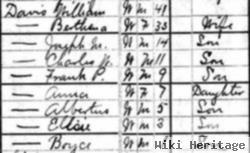 Davis William W M 41
— Berthena W F 33 Wife
— Joseph M. W M 14 Son
— Charles W. W M 11 Son
— Frank P. W M 9 Son
— Anna W F 7 Daughter
— Albertus W M 5 Son
— Elksie W M 3 Son
— Boyce W M Son
Wiki Heritage